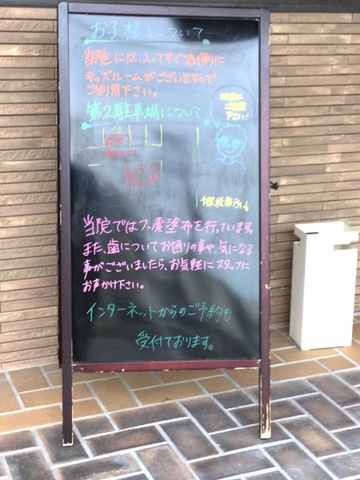 お子様について
当院には、入ってすぐ右側に
キッズルームがございますので
ご利用下さい。
第2駐車場について
下さい!
当院ではフッ素塗布を行っています。
また、歯についてお困りの事や、気になる
事がございましたら、お気軽にスタッフに
お声かけ下さい。
インターネットからのご予約も
受付ております。